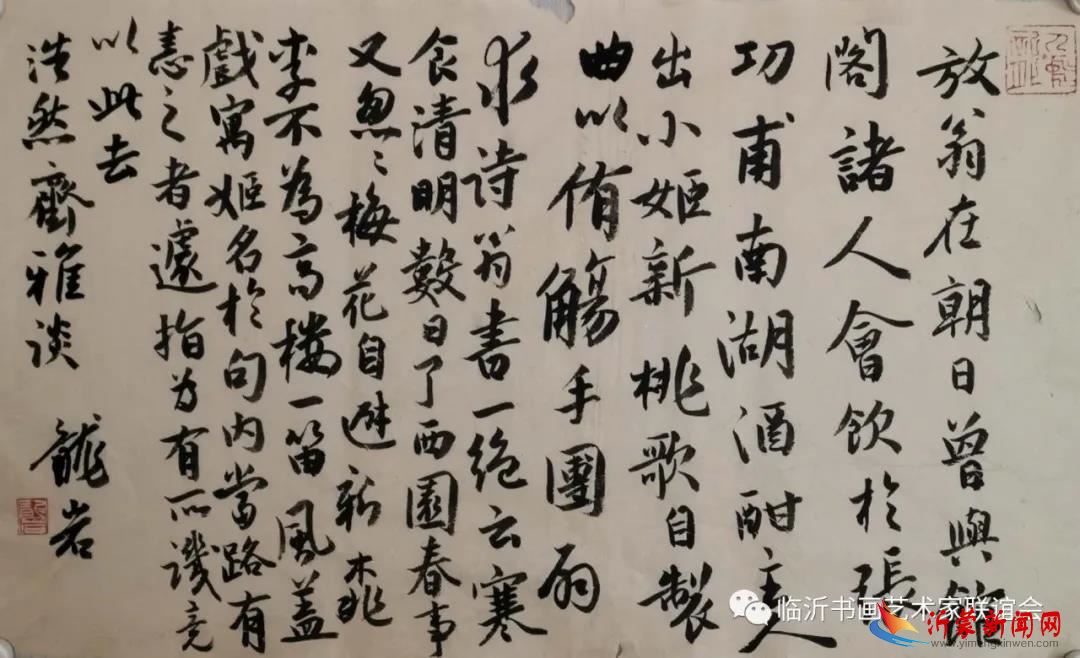 放翁在朝日曾與館
閣諸人會飲於張
功甫南湖酒酣主人
出小姬新桃歌自製
曲以侑觴手團扇
求詩翁書一绝云寒
食清明數日了西園春事
又怱〻梅花自避新桃
李不為高樓一笛風蓋
戲寓姬名於句内當路有
恚之者遽指为有所譏竟
以此去
浩然齋雅谈 龍岩
临沂书画艺术家联谊会
沂蒙新闻网
www.yimengxinwen.com